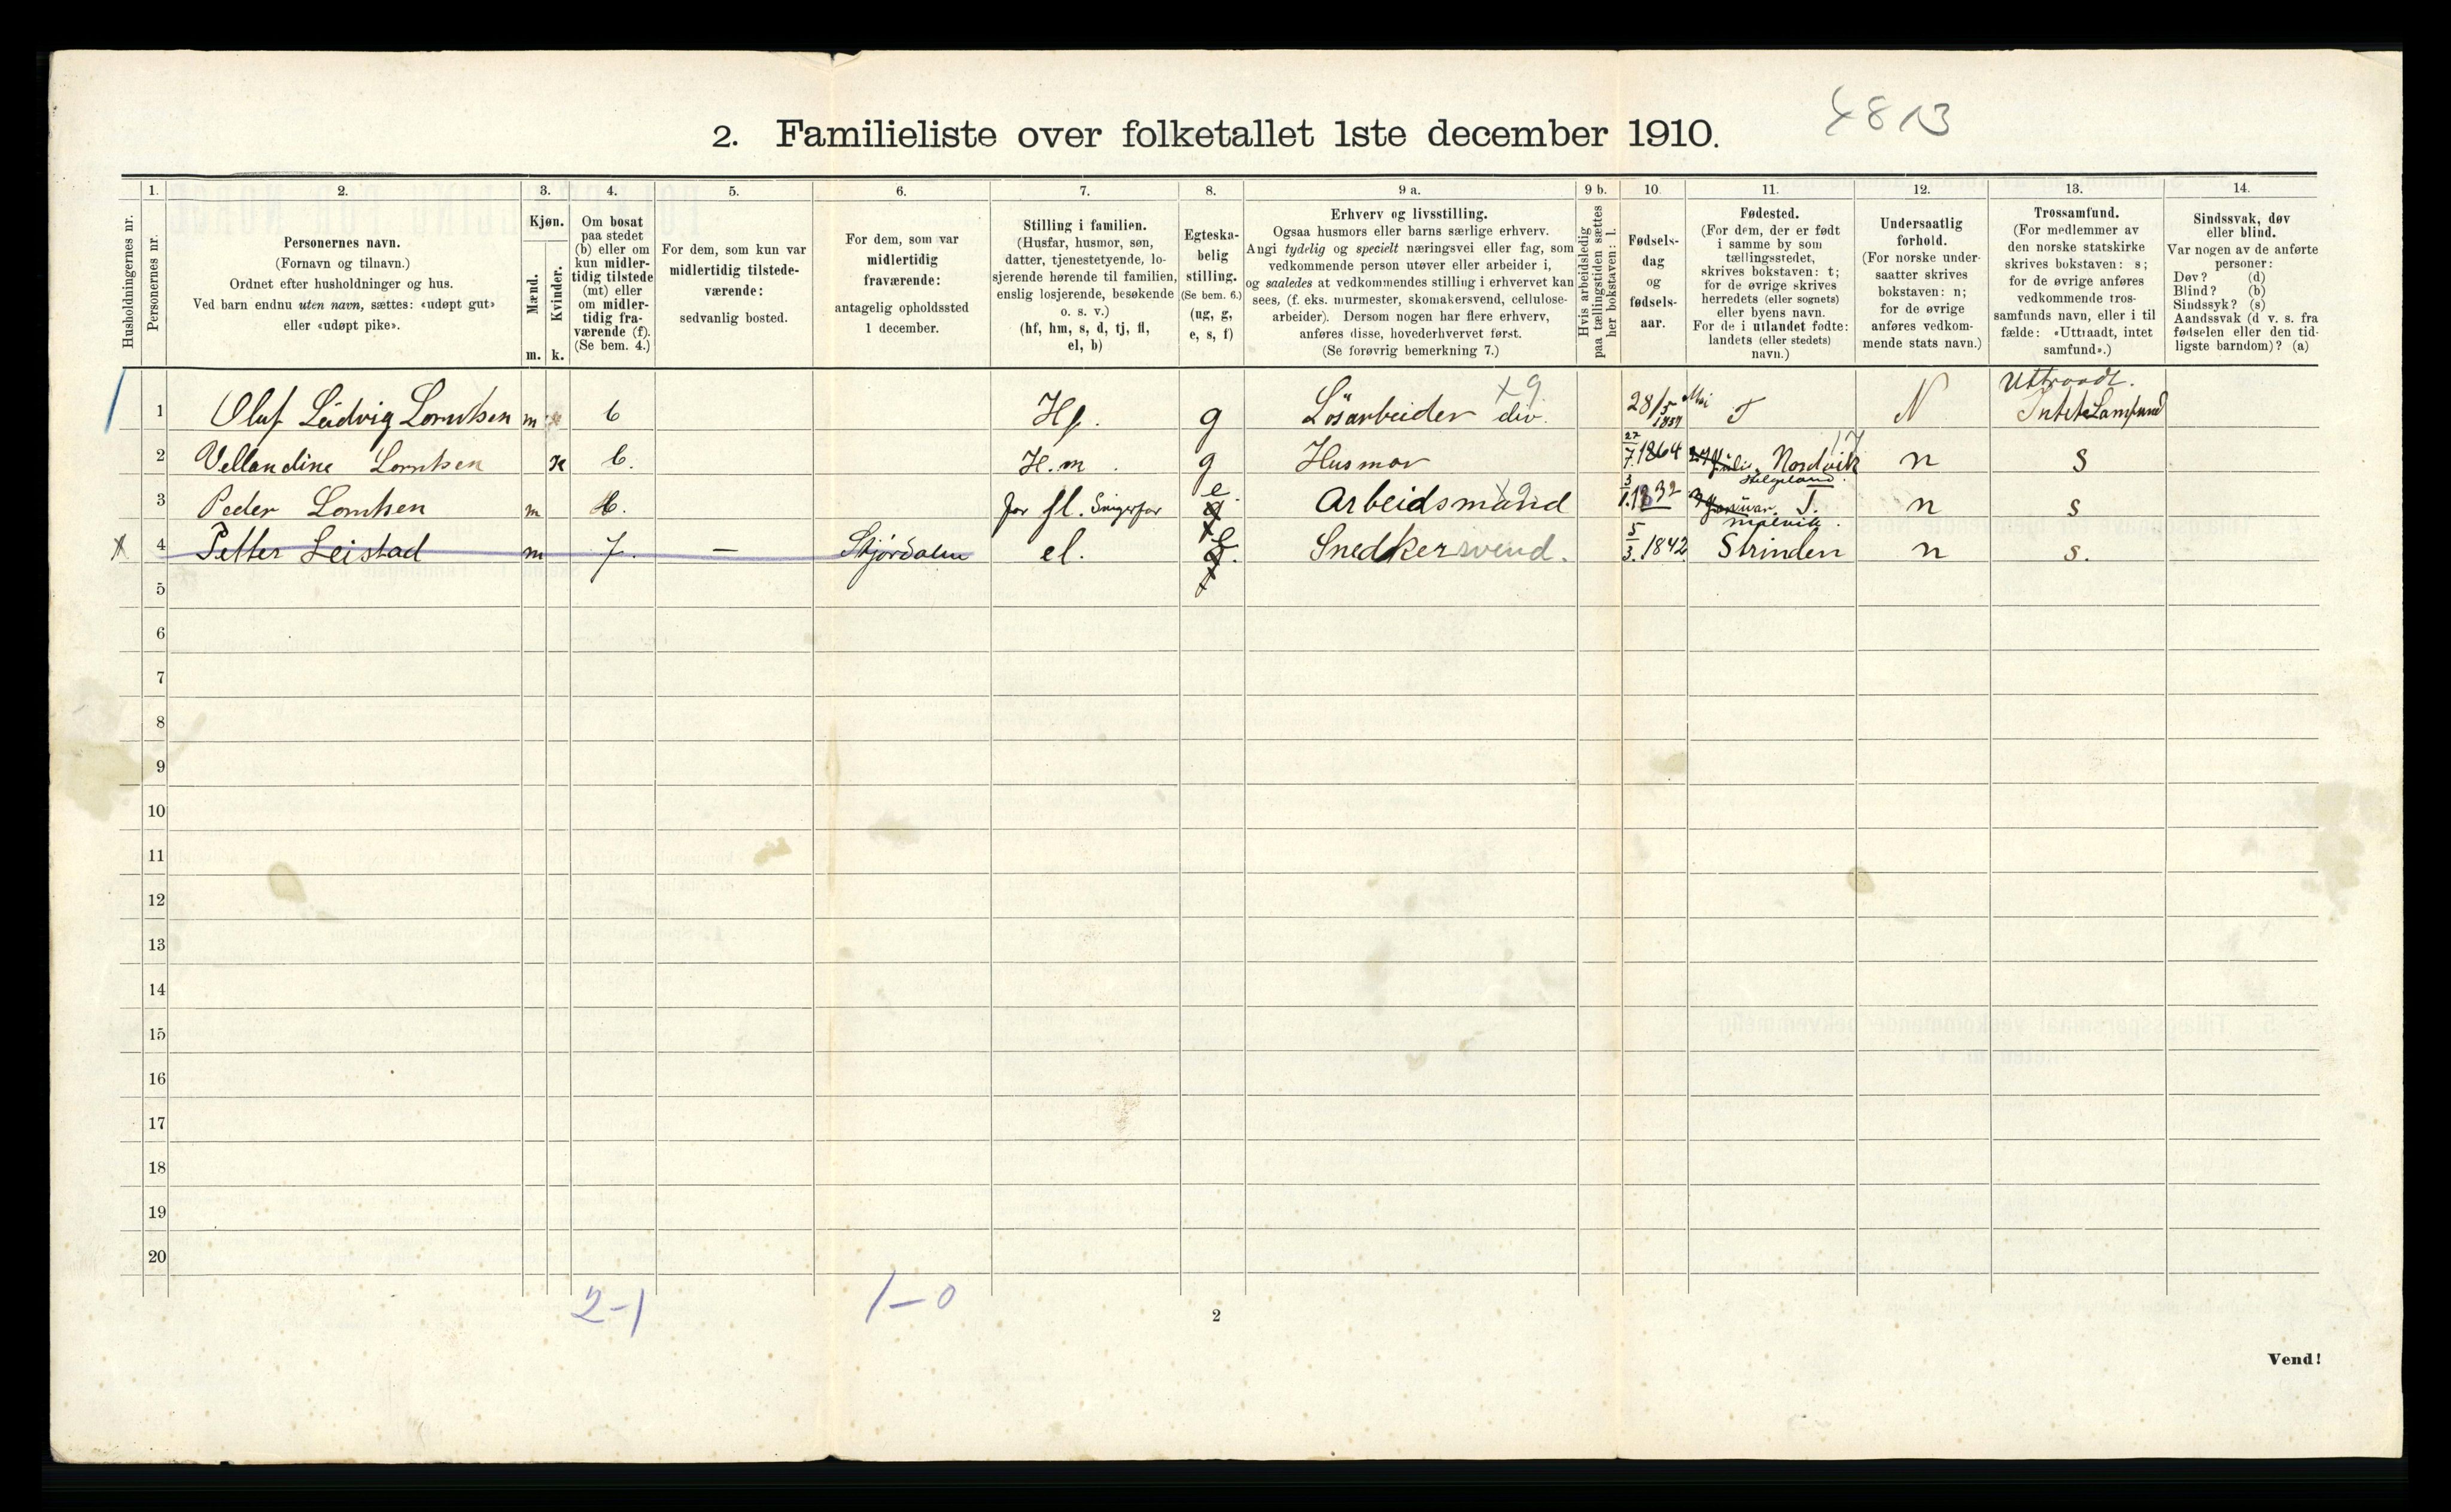 4813
2. Familieliste over folketallet 1ste december 1910.
Husholdningernes nr.
1.
Personernes nr.
2.
Personernes navn.
(Fornavn og tilnavn.)
Ordnet efter husholdninger og hus.
Ved barn endnu uten navn, sættes: «udøpt gut»
eller «udøpt pike».
3.
Kjøn.
Mænd.
Kvinder.
m. k.
4.
Om bosat
paa stedet
(b) eller om
kun midler-
tidig tilstede
(mt) eller
om midler-
tidig fra-
værende (f).
(Se bem. 4.)
5.
For dem, som kun var
midlertidig tilstede-
værende:
sedvanlig bosted.
6.
For dem, som var
midlertidig
fraværende:
antagelig opholdssted
1 december.
7.
Stilling i familien.
(Husfar, husmor, søn,
datter, tjenestetyende, lo-
sjerende hørende til familien,
enslig losjerende, besøkende
o. s. v.)
(hf, hm, s, d, tj, fl,
el, b)
8.
Egteska-
belig
stilling.
(Se bem. 6.)
(ug, g,
e, s, f)
9 a.
Erhverv og livsstilling.
Ogsaa husmors eller barns særlige erhverv.
Angi tydelig og specielt næringsvei eller fag, som
vedkommende person utøver eller arbeider i,
og saaledes at vedkommendes stilling i erhvervet kan
sees, (f. eks. murmester, skomakersvend, cellulose-
arbeider). Dersom nogen har flere erhverv,
anføres disse, hovederhvervet først.
(Se forøvrig bemerkning 7.)
9 b.
Hvis arbeidsledig
paa tællingstiden sættes
her bokstaven: l.
10.
Fødsels-
dag
og
fødsels-
aar.
11.
Fødested.
(For dem, der er født
i samme by som
tællingsstedet,
skrives bokstaven: t;
for de øvrige skrives
herredets (eller sognets)
eller byens navn.
For de i utlandet fødte:
landets (eller stedets)
navn.)
12.
Undersaatlig
forhold.
(For norske under-
saatter skrives
bokstaven: n;
for de øvrige
anføres vedkom-
mende stats navn.)
13.
Trossamfund.
(For medlemmer av
den norske statskirke
skrives bokstaven: s;
for de øvrige anføres
vedkommende tros-
samfunds navn, eller i til
fælde: «Uttraadt, intet
samfund».)
14.
Sindssvak, døv
eller blind.
Var nogen av de anførte
personer:
Døv? (d)
Blind? (b)
Sindssyk? (s)
Aandssvak (d v. s. fra
fødselen eller den tid-
ligste barndom)? (a)
1 Oluf Ludvig Lorntsen m b Hf. g Lösarbeider div. x9 28/5 Mai T N Uttraadt. Intet Samfund
2 Vellandine Lorntsen k b. H.m. g Husmor 27/7.1864 Nordvik Helgeland. 17 n s
3 Peder Lorntsen m b. far fl. Svigerfar e Arbeidsmand x9 3/1.1832 januar. T. n s
4 Petter Leistad m f. — Stjördalen el. e Snedkersvend. 5/3.1842 malvik. Strinden n s.
5
6
7
8
9
10
11
12
13
14
15
16
17
18
19
20
2-1
1-0
2
Vend!